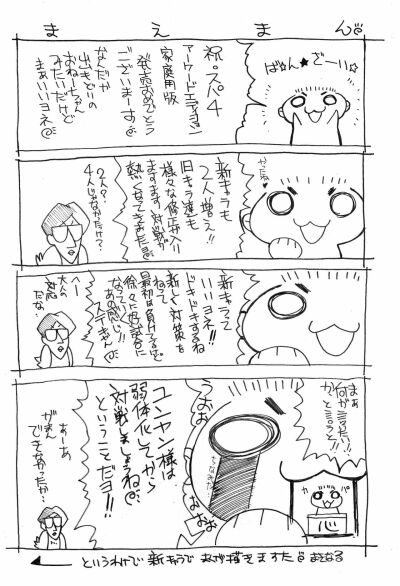 まえまん
ばん☆ざーい☆
祝・スパ4
アーケードエディション
家庭用版
発売おめでとう
ございまーす
なんだか
出きどいの
おねーちゃん
みたいだけど
まぁいいヨネ
新キャラも
2人増え!!
旧キャラ達も
様々な修正が入り
ますます対戦が
熱くなってきまた
2人?
4人じゃなかったけ?
新キャラって
いいヨネ!!
ドキドキするね
新しく対策を
ねって
最初は負けてるけど
徐々に好勝負に
なっていく
あの感じ!!
ステキやん
へー
大人の
対応
だな
まぁ
何が言うたい
かと言うと!!
うおお
おおお
ユンヤン様は
弱体化してから
対戦しましょうね
ということだヨ!!
あーあ
がまん
できなかったか
というわけで新キャラで
描きますた